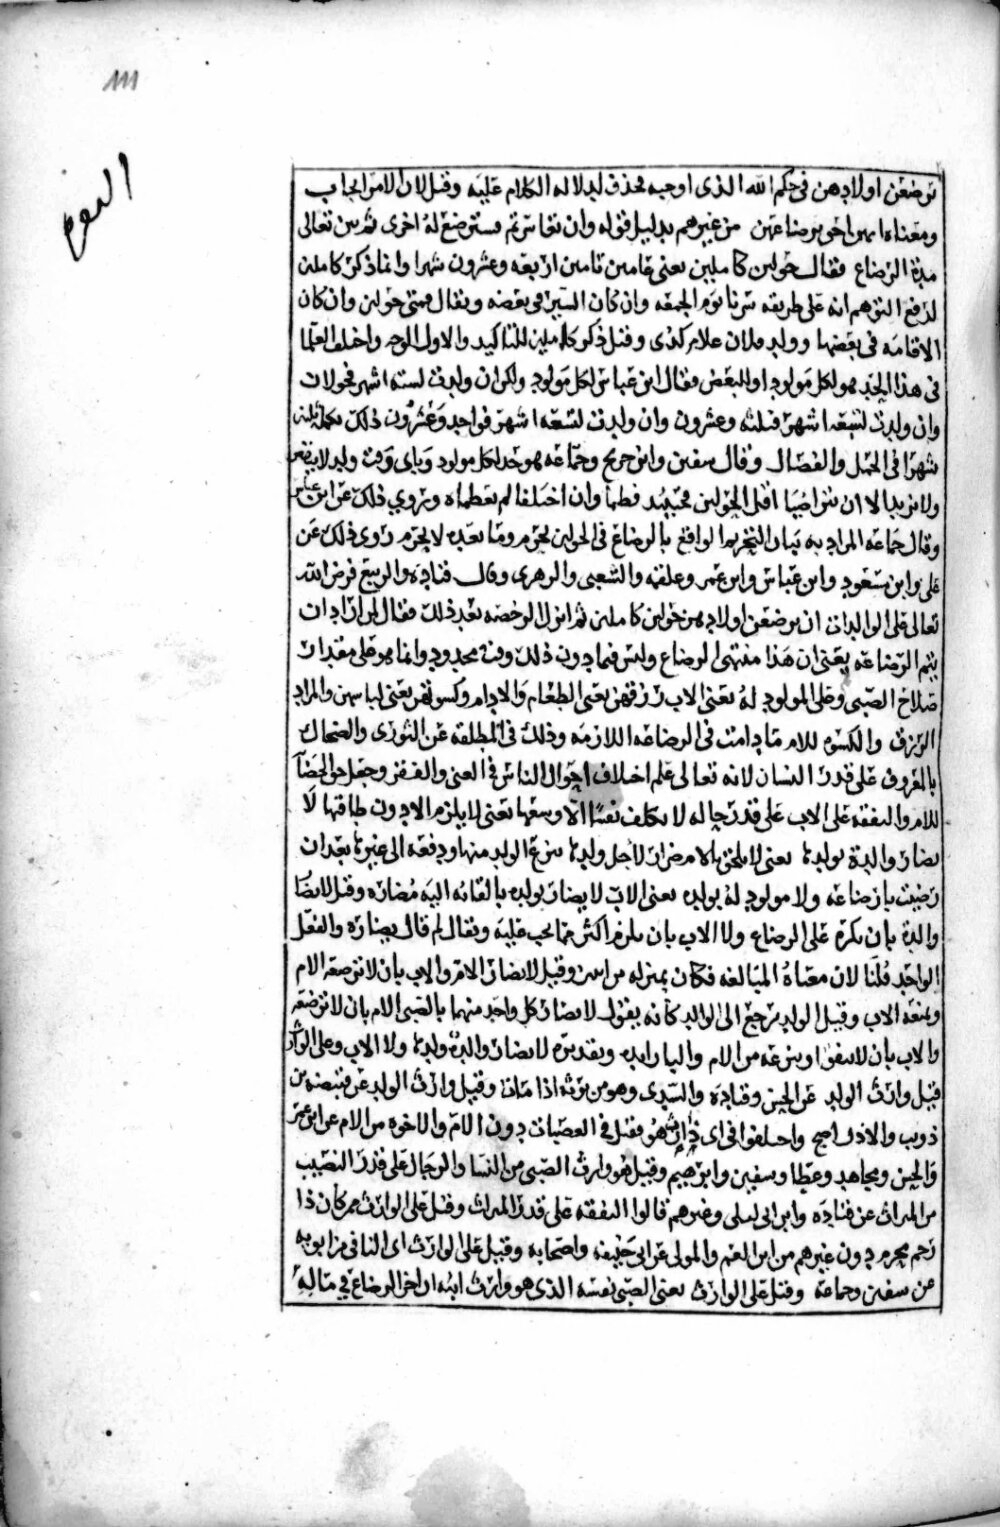 111
ترضعن اولادهن في حكم الله الذى اوجبه محذف لدلاله الكلام عليه وقيل لان الامر ايجاب
ومعناه انهن احق برضاعهن من غيرهم بدليل قوله وان تعاسرتم فسترضع له اخرى ثم بين تعالى
مدة الرضاع فقال حولين كاملين يعنى عامين تامين اربعه وعشرون شهرا وانما ذكر كاملين
لدفع التوهم انه على طريقه سرنا يوم الجمعه وان كان السير في بعضه ويقال فمتى حولين وان كان
الاقامه في بعضها وولد فلان علام كذى وقيل ذكر كاملين للتاكيد والاول الوجه واختلف العلما
في هذا الحد هو لكل مولود او للبعض فقال ابن عباس لكل مولود ولكن ان ولدت لسته اشهر فحولان
وان ولدت لسبعه اشهر فثلثه وعشرون وان ولدت لتسعه اشهر فواحد وعشرون ذلك تكمله ثلثين
شهرا في الحمل والفصال وقال سفين وابن جريج وجماعه هو حد لكل مولود وباى وقت ولد لا ينقص
ولا يزيد الا ان يتراضيا اقل الحولين فحينئذ فطما وان اختلفا لم يفطماه وروي ذلك عن ابن عباس
وقال جماعه المراد به بيان التحريم الواقع بالرضاع في الحولين يحرم وما بعده لا يحرم روى ذلك عن
على وابن مسعود وابن عباس وابن عمر وعلقمه والشعبى والزهرى وقال قتاده والربيع فرض الله
تعالى على الوالدات ان يرضعن اولادهن حولين كاملين ثم انزل الرخصه بعد ذلك فقال لمن اراد ان
يتم الرضاعه يعنى ان هذا منتهى الرضاع وليس فيما دون ذلك وقت محدود وانما هو على مقدار
صلاح الصبى وعلى المولود له يعنى الاب رزقهن يعنى الطعام والادام وكسوتهن يعنى لباسهن والمراد
الرزق والكسوه للام مادامت في الرضاعه اللازمه وذلك في المطلقه عن الثورى والضحاك
بالمعروف على قدر اليسار لانه تعالى علم اختلاف احوال الناس في الغنى والفقر وجعل حق الحضانه
للام والنفقه على الاب على قدر حاله لا تكلف نفسا الا وسعها يعنى لا يلزم الا دون طاقتها لا
تضار والدة بولدها يعنى لا يلحق بالام ضرار لاجل ولدها بنزع الولد منها ودفعه الى غيرها بعد ان
رضيت بارضاعه ولا مولود له بولده يعنى الاب لا يضار بولده بالقائه اليه مضاره وقيل لا تضار
والدة بان تكره على الرضاع ولا الاب بان يلزم اكثر مما يجب عليه ويقال لم قال يضاره والفعل
لواحد قلنا لان معناه المبالغه فكان بمنزله من اثنين وقيل لا يضار الام والاب بان لا ترضعه الام
ويمنعه الاب وقيل الولد يرجع الى الوالد كانه يقول لا يضار كل واحد منهما بالصبى الام بان لا ترضعه
والاب بان لا ينفق او ينزعه من الام والبا زايده وتقديره لا يضار والدة ولدها ولا الاب وعلى الوارث
قيل وارث الولد عن الحسن وقتاده والسدى وهو من يرثه اذا مات وقيل وارث الوالد عن قبيصه بن
ذويب والاول اصح واختلفوا في اى وارث هو فقيل في العصبات دون الام والاخوه من الام عن ابن عمر
والحسن ومجاهد وعطا وسفين وابرهيم وقيل هو وارث الصبى من النسا والرجال على قدر النصيب
من الميراث عن قتاده وابن ابى ليلى وغيرهم قالوا النفقه على قدر الميراث وقيل على الوارث ممن كان ذا
رحم محرم دون غيرهم من ابن العم والمولى عن ابى حنيفه واصحابه وقيل على الوارث اى الباقى من ابويه
عن سفين وجماعه وقيل على الوارث يعنى الصبى نفسه الذى هو وارث ابيه ان اجر الرضاع في ماله